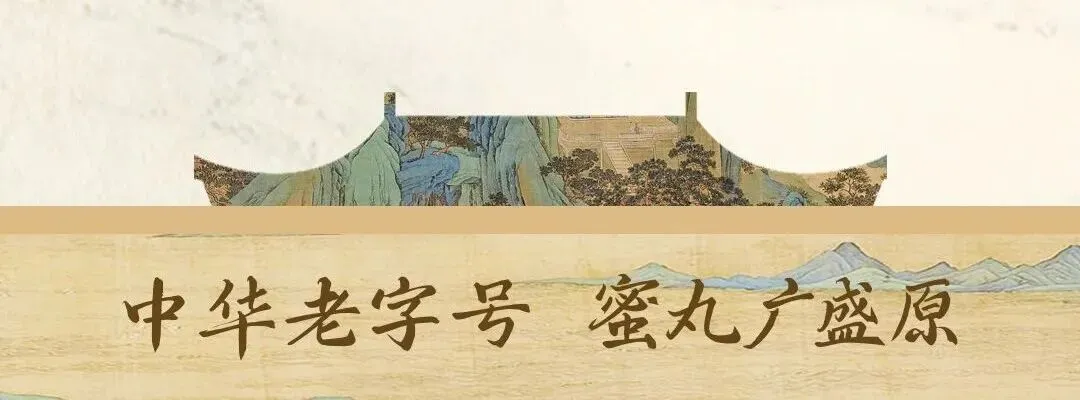 中华老字号 蜜丸广盛原